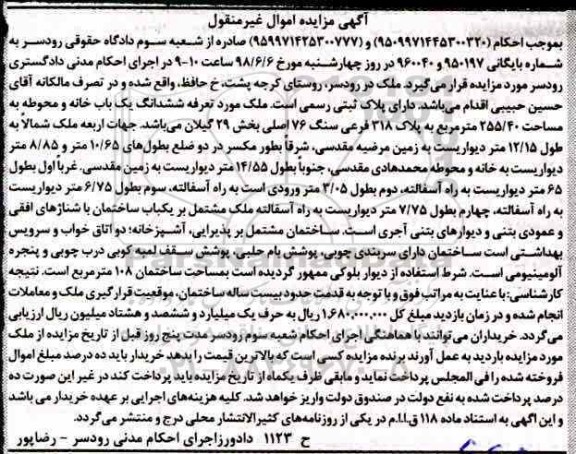 آگهی مزایده اموال غیرمنقول
بموجب احکام (۹۵۰۹۹۷۱۴۴۵۳۰۰۳۲۰) و (۹۵۹۹۷۱۴۲۵۳۰۰۷۷۷) صادره از شعبه سوم دادگاه حقوقی رودسر به
شماره بایگانی ۹۵۰۱۹۷ و ۹۶۰۰۴۰ در روز چهارشنبه مورخ ۹۸/۶/۶ ساعت ۱۰-۹ در اجرای احکام مدنی دادگستری
رودسر مورد مزایده قرار می‌گیرد. ملک در رودسر، روستای گرجه پشت، خ حافظ، واقع شده و در تصرف مالکانه آقای
حسین حبیبی اقدام می‌باشد. دارای پلاک ثبتی رسمی است. ملک مورد تعرفه ششدانگ یک باب خانه و محوطه به
مساحت ۲۵۵/۴۰ مترمربع به پلاک ۳۱۸ فرعی سنگ ۷۶ اصلی بخش ۲۹ گیلان می‌باشد. جهات اربعه ملک شمالاً به
طول ۱۲/۱۵ متر دیواریست به زمین مرضیه مقدسی، شرقاً بطور مکسر در دو ضلع بطول‌های ۱۰/۶۵ متر و ۸/۸۵ متر
دیواریست به خانه و محوطه محمدهادی مقدسی، جنوباً بطول ۱۴/۵۵ متر دیواریست به زمین مقدسی. غرباً اول بطول
۶۵ متر دیواریست به راه آسفالته، دوم بطول ۳/۰۵ متر ورودی است به راه آسفالته، سوم بطول ۶/۷۵ متر دیواریست
به راه آسفالته، چهارم بطول ۷/۷۵ متر دیواریست به راه آسفالته ملک مشتمل بر یکباب ساختمان با شناژهای افقی
و عمودی بتنی و دیوارهای بتنی آجری است. ساختمان مشتمل بر پذیرایی، آشپزخانه؛ دو اتاق خواب و سرویس
بهداشتی است ساختمان دارای سربندی چوبی، پوشش بام حلبی، پوشش سقف لمبه کوبی درب چوبی و پنجره
آلومینیومی است. شرط استفاده از دیوار بلوکی ممهور گردیده است بمساحت ساختمان ۱۰۸ مترمربع است. نتیجه
کارشناسی: با عنایت به مراتب فوق و با توجه به قدمت حدود بیست ساله ساختمان، موقعیت قرارگیری ملک و معاملات
انجام شده و در زمان بازدید مبلغ کل ۱,۶۸۰,۰۰۰,۰۰۰ ریال به حرف یک میلیارد و ششصد و هشتاد میلیون ریال ارزیابی
می‌گردد. خریداران می‌توانند با هماهنگی اجرای احکام شعبه سوم رودسر مدت پنج روز قبل از تاریخ مزایده از ملک
مورد مزایده بازدید به عمل آورند برنده مزایده کسی است که بالاترین قیمت را بدهد خریدار باید ده درصد مبلغ اموال
فروخته شده را فی المجلس پرداخت نماید و مابقی ظرف یکماه از تاریخ مزایده باید پرداخت کند در غیر این صورت ده
درصد پرداخت شده به نفع دولت در صندوق دولت واریز خواهد شد. کلیه هزینه‌های اجرایی بر عهده خریدار می باشد
و این آگهی به استناد ماده ۱۱۸ ق.ا.ا.م در یکی از روزنامه‌های کثیرالانتشار محلی درج و منتشر می‌گردد.
ح ۱۱۲۳ دادورز اجرای احکام مدنی رودسر - رضاپور